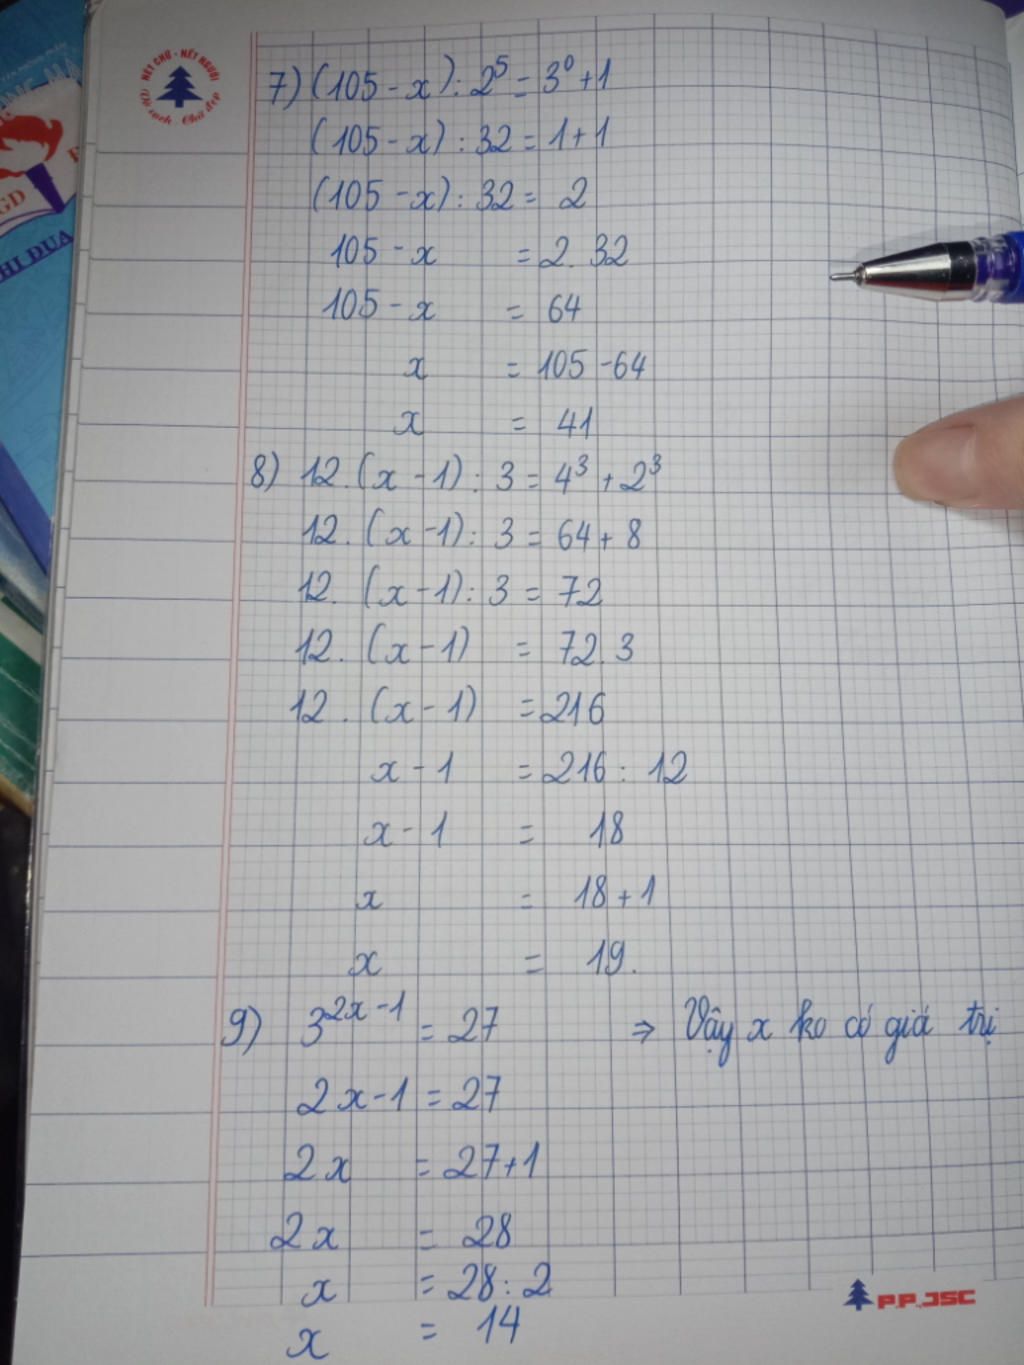 NÉT CHỮ - NẾT NGƯỜI
7) (105 - x) : 2⁵ = 3⁰ + 1
(105 - x) : 32 = 1 + 1
(105 - x) : 32 = 2
105 - x = 2. 32
105 - x = 64
x = 105 - 64
x = 41
8) 12. (x - 1) : 3 = 4³ + 2³
12. (x - 1) : 3 = 64 + 8
12. (x - 1) : 3 = 72
12. (x - 1) = 72. 3
12. (x - 1) = 216
x - 1 = 216 : 12
x - 1 = 18
x = 18 + 1
x = 19.
9) 3²ˣ⁻¹ = 27 ⇒ Vậy x ko có giá trị
2x - 1 = 27
2x = 27 + 1
2x = 28
x = 28 : 2
x = 14
P.P.,JSC
GD
HI ĐUA